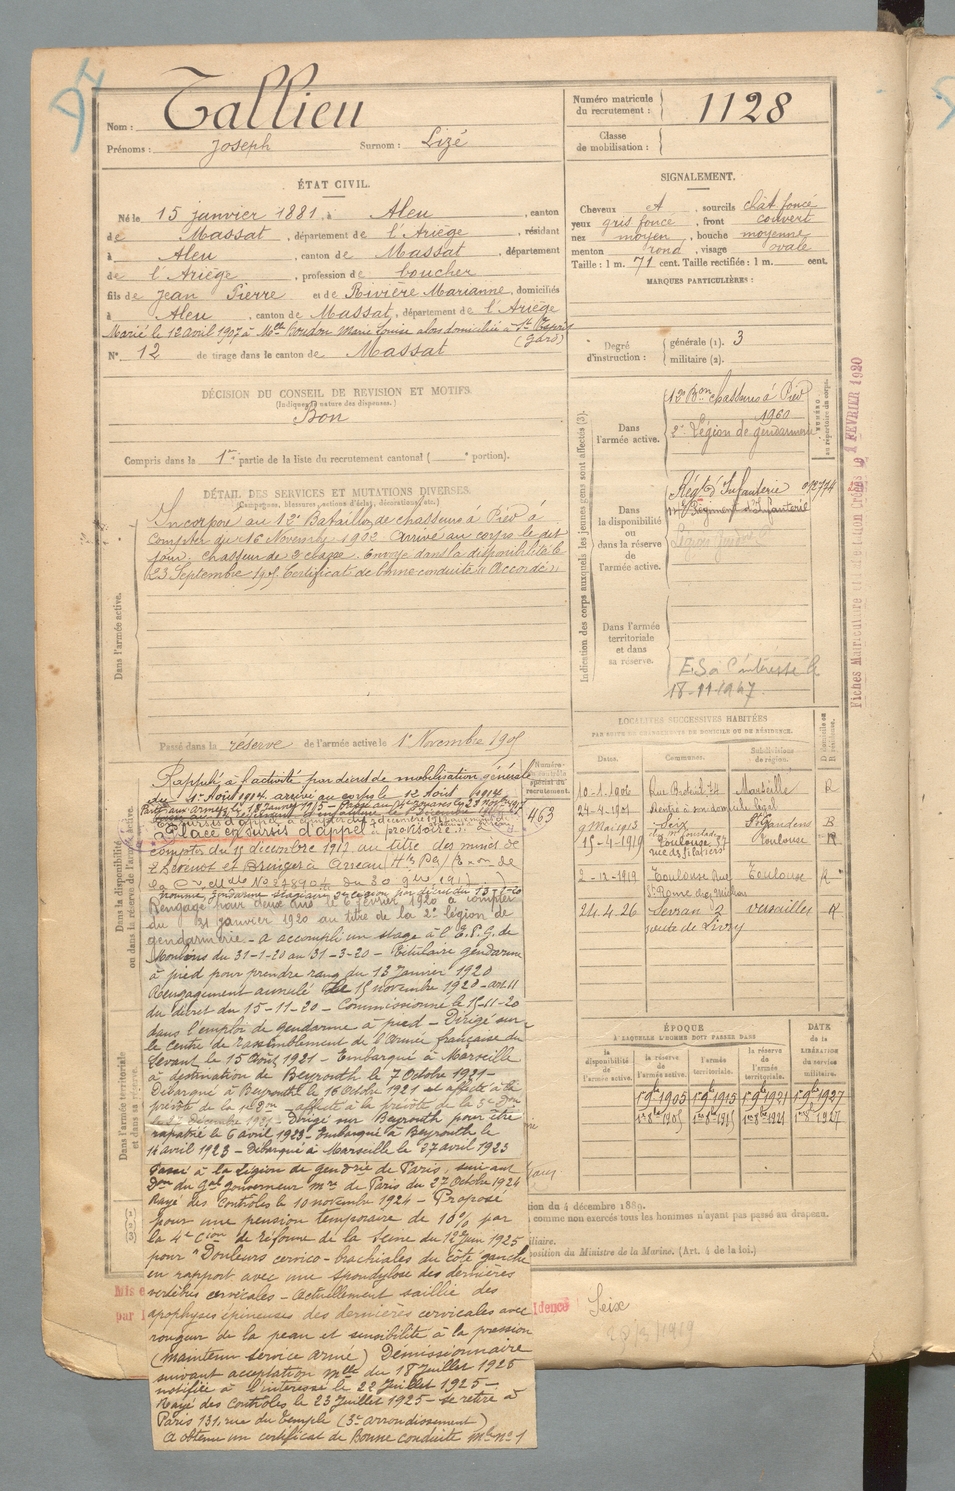 Nom : Tallieu
Prénoms : Joseph Surnom : Lizé
Numéro matricule du recrutement : 1128
Classe de mobilisation :
ÉTAT CIVIL.
Né le 15 janvier 1881, à Aleu, canton
de Massat, département de l'Ariège, résidant
à Aleu, canton de Massat, département
de l'Ariège, profession de boucher
fils de Jean Pierre et de Rivière Marianne, domiciliés
à Aleu, canton de Massat, département de l'Ariège
Marié le 12 avril 1907 à Melle Bourdon Marie Louise alors domiciliée à St
(Gard)
N° 12 de tirage dans le canton de Massat
SIGNALEMENT.
Cheveux et, sourcils chât foncé
yeux gris foncé, front couvert
nez moyen, bouche moyenne
menton rond, visage ovale
Taille : 1 m. 71 cent. Taille rectifiée : 1 m. cent.
MARQUES PARTICULIÈRES :
Degré d'instruction : générale (1). 3
militaire (2).
DÉCISION DU CONSEIL DE REVISION ET MOTIFS.
(Indiquer la nature des dispenses.)
Bon
Compris dans la 1re partie de la liste du recrutement cantonal ( e portion).
DÉTAIL DES SERVICES ET MUTATIONS DIVERSES.
(Campagnes, blessures, actions d'éclat, décorations, etc.)
Dans l'armée active.
Incorporé au 12e Bataillon de chasseurs à Pied à
compter du 16 Novembre 1902. Arrivé au corps le dit
jour, chasseur de 2e classe. Envoyé dans la disponibilité le
23 Septembre 1905. Certificat de bonne conduite "Accordé"
Passé dans la réserve de l'armée active le 1er Novembre 1905
Indication des corps auxquels les jeunes gens sont affectés (3).
NUMÉRO au répertoire du corps.
Dans l'armée active.
12e Bon chasseurs à Pied
1960
2e Légion de gendarmerie
Dans la disponibilité ou dans la réserve de l'armée active.
Régt d'Infanterie 012774
Régiment d'Infanterie
Dans l'armée territoriale et dans sa réserve.
E.S. à l'intéressé le
18-11-1947.
Fiches Matriculaire
FÉVRIER 1920
LOCALITÉS SUCCESSIVES HABITÉES
PAR SUITE DE CHANGEMENTS DE DOMICILE OU DE RÉSIDENCE.
Dates. Communes. Subdivisions de région. D domicile ou R résidence.
10-1-1906 Rue Breteuil 74 Marseille R
24-4-1901 Rentré à son domicile légal
9 Mai 1913 Seix St Gaudens R
15-4-1919 Toulouse 37 Toulouse R
rue des filatiers
2-12-1919 Toulouse Rue Toulouse R
St Rome
24.4.26 Sevran 2 Versailles R
route de Livry
Numéro au contrôle spécial du recrutement.
463
Dans la disponibilité ou dans la réserve de l'armée active.
Dans l'armée territoriale et dans sa réserve.
Rappelé à l'activité par décret de mobilisation générale
du 1er Août 1914 arrivé au corps le 12 Août 1914
Parti aux armées le 18 Janvier 1915
Placé en sursis d'appel
compter du 15 décembre 1917 au titre des mines de
à Arreau (Htes Pes)
nommé gendarme stagiaire
Rengagé pour deux ans le 6 février 1920 à compter
du 31 janvier 1920 au titre de la 2e légion de
gendarmerie - A accompli un stage à l'E.P.G. de
Moulins du 31-1-20 au 31-3-20 - Titulaire gendarme
à pied pour prendre rang du 13 Janvier 1920
Rengagement annulé le 15 novembre 1920 - art 11
du décret du 15-11-20 - Commissionné le 15-11-20
dans l'emploi de gendarme à pied - Dirigé sur
le centre de rassemblement de l'Armée française du
Levant le 15 Août 1921 - Embarqué à Marseille
à destination de Beyrouth le 7 Octobre 1921 -
Débarqué à Beyrouth le 16 Octobre 1921 et affecté à la
prévôté de la 1re Don affecté à la prévôté de la 3e Don
Dirigé sur Beyrouth pour être
rapatrié le 6 avril 1923 - Embarqué à Beyrouth le
avril 1923 - Débarqué à Marseille le 27 avril 1923
Passé à la Légion de gendrie de Paris, suivant
Don du Gal gouverneur mre de Paris du 27 Octobre 1924
Rayé des contrôles le 10 novembre 1924 - Proposé
pour une pension temporaire de 10% par
la 4e Cion de réforme de la Seine du 12 Juin 1925
pour "Douleurs cervico-brachiales du côté gauche
en rapport avec une spondylose des dernières
vertèbres cervicales - Actuellement saillie des
apophyses épineuses des dernières cervicales avec
rougeur de la peau et sensibilité à la pression
(maintenu service armé) Démissionnaire
suivant acceptation mlle du 18 Juillet 1925
notifiée à l'intéressé le 22 Juillet 1925 -
Rayé des contrôles le 23 Juillet 1925 - se retire à
Paris 131, rue du Temple (3e arrondissement)
A obtenu un certificat de Bonne conduite mle n° 1
ÉPOQUE
À LAQUELLE L'HOMME DOIT PASSER DANS
la disponibilité de l'armée active. la réserve de l'armée active. l'armée territoriale. la réserve de l'armée territoriale.
DATE de la LIBÉRATION du service militaire.
1er 9bre 1905 1er 9bre 1915 1er 9bre 1921 1er 9bre 1927
1er 8bre 1905 1er 8bre 1915 1er 8bre 1921 1er 8bre 1927
tion du 4 décembre 1889.
comme non exercés tous les hommes n'ayant pas passé au drapeau.
iliaire.
position du Ministre de la Marine. (Art. 4 de la loi.)
Mis e
par l
idence Seix